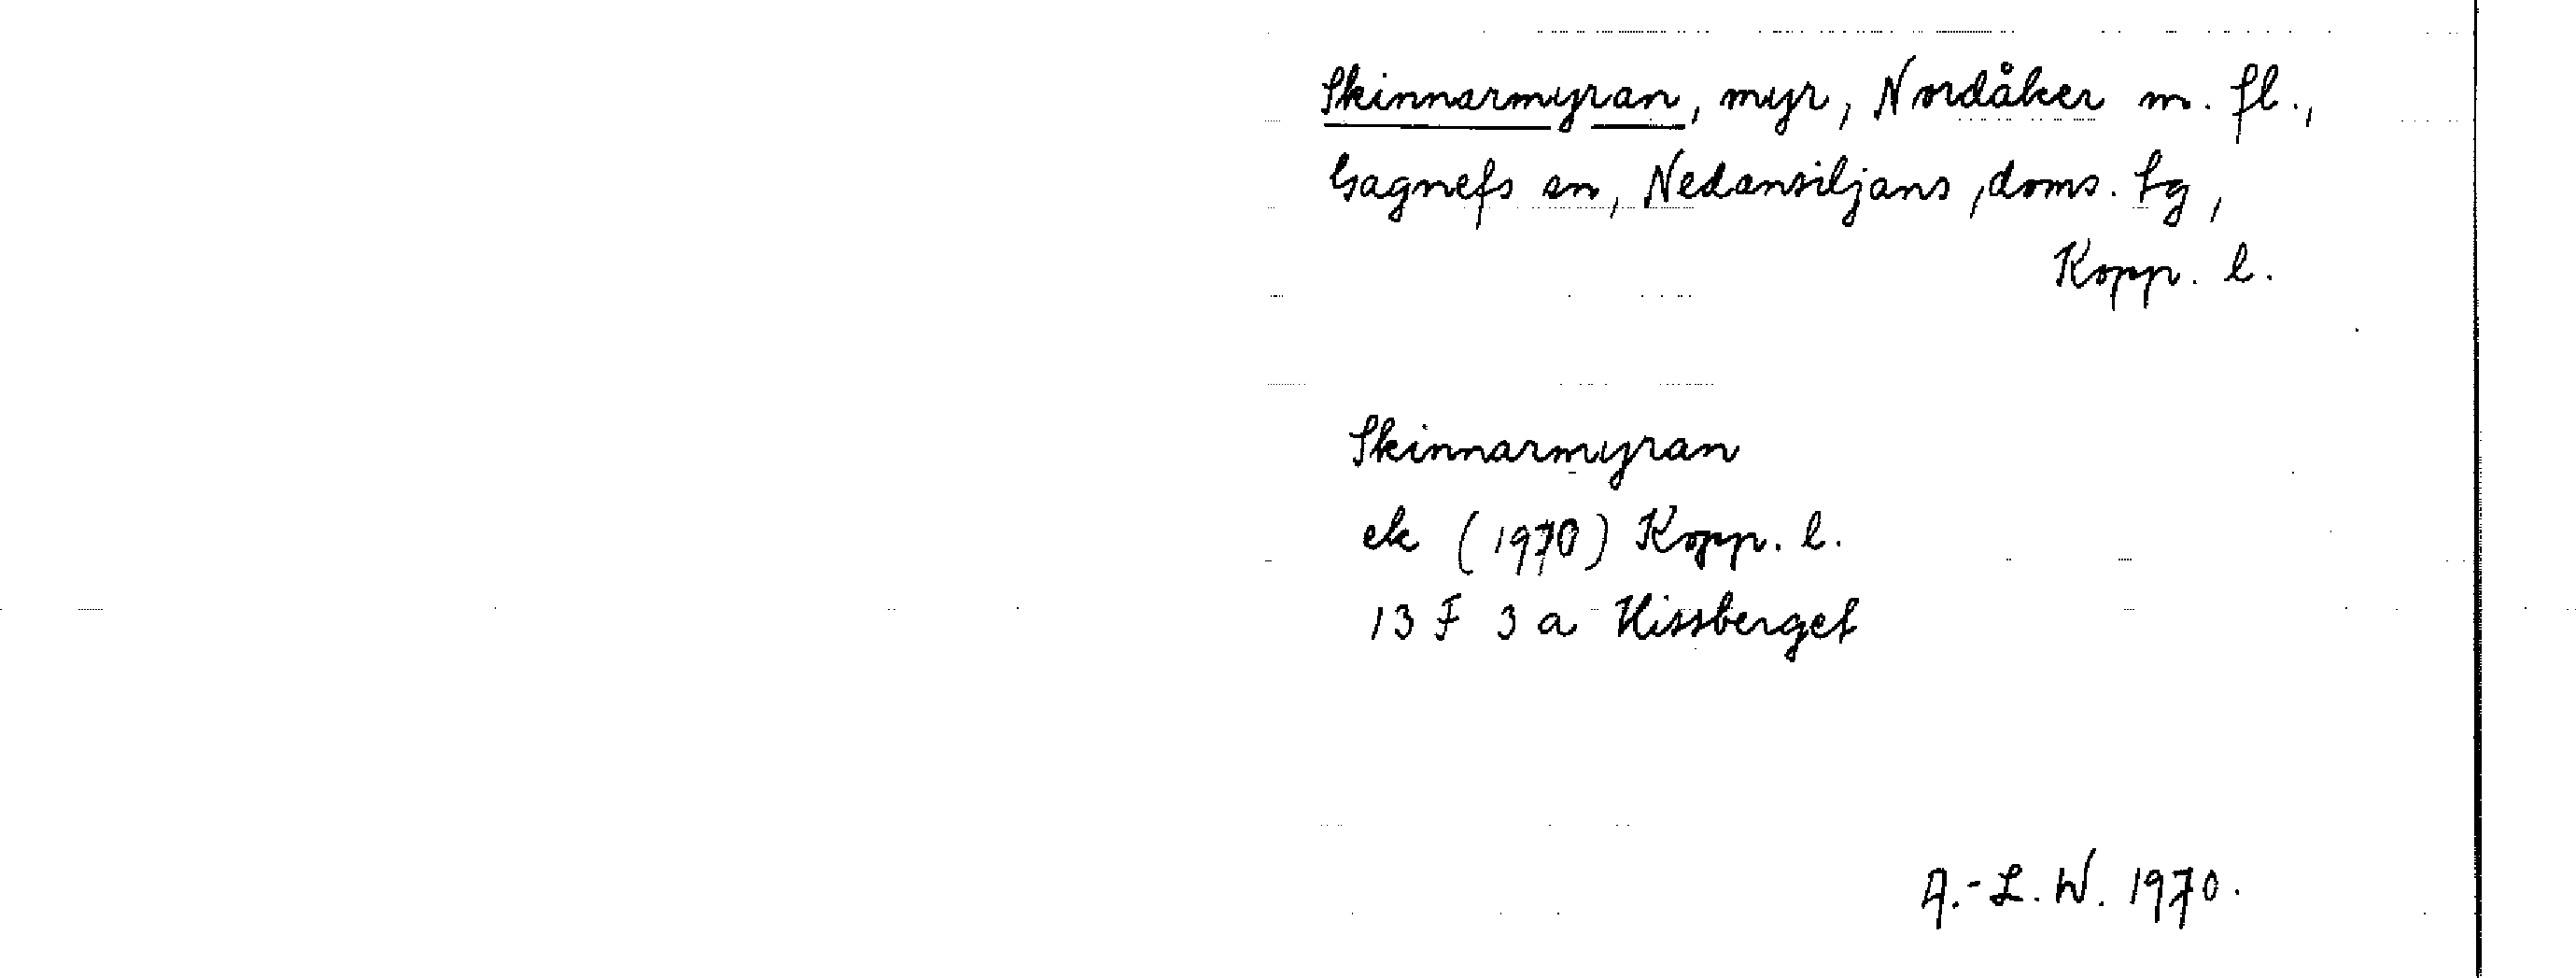 Skinnarmyran, myr, Nordåker m. fl.,
Gagnefs sn, Nedansiljans doms. tg,
Kopp. l.
Skinnarmyran
ek (1970) Kopp. l.
13 F 3 a Hissberget
A.-L. W. 1970.